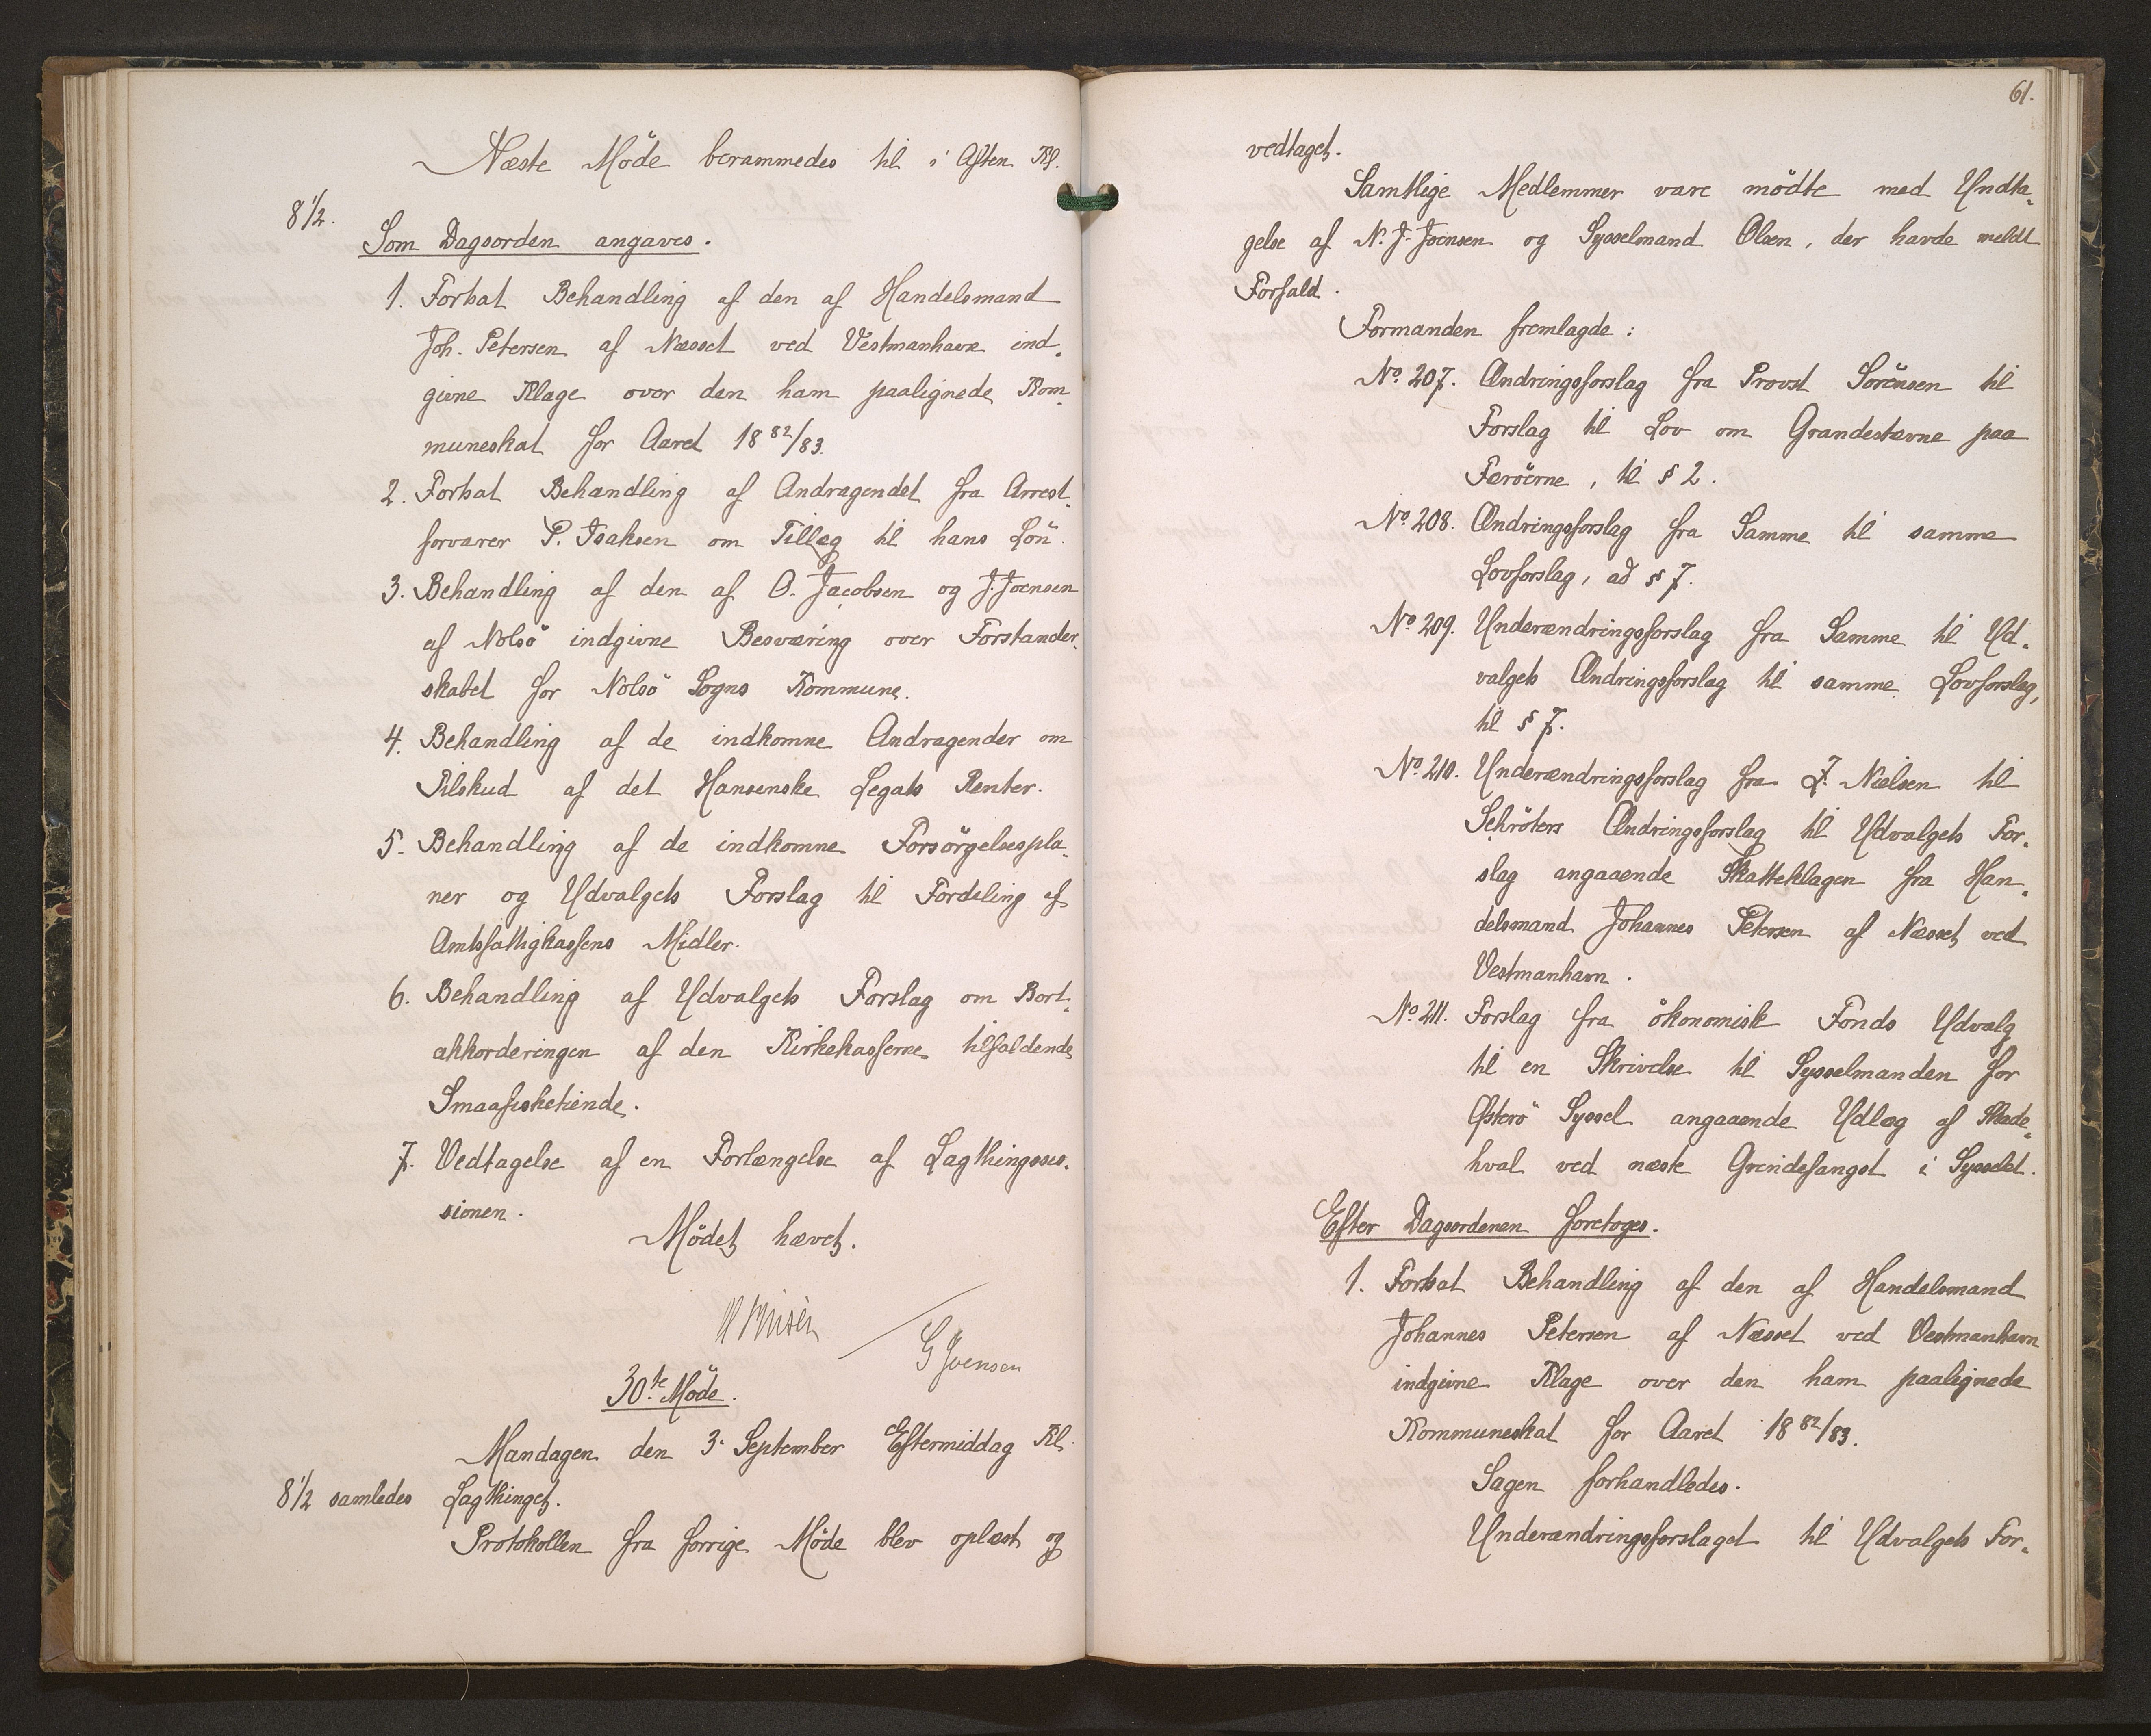 Næste Möde berammedes til i Aften Kl.
8 1/2.
Som Dagsorden angaves.
1. Fortsat Behandling af den af Handelsmand
Joh. Petersen af Næsset ved Vestmanhavn ind-
givne Klage over den ham paalignede Kom-
muneskat for Aaret 18 82/83.
2. Fortsat Behandling af Andragendet fra Arrest-
forvarer P. Isaksen om Tillæg til hans Lön.
3. Behandling af den af O. Jacobsen og J. Joensen
af Nolsö indgivne Besværing over Forstander-
skabet for Nolsö Sogns Kommune.
4. Behandling af de indkomne Andragender om
Tilskud af det Hansenske Legats Renter.
5. Behandling af de indkomne Forsörgelsespla-
ner og Udvalgets Forslag til Fordeling af
Amtsfattigkassens Midler.
6. Behandling af Udvalgets Forslag om Bort-
akkorderingen af den Kirkekasserne tilfaldende
Smaafisketiende.
7. Vedtagelse af en Forlængelse af Lagthingsses-
sionen.
Mödet hævet.
G Joensen
30te Möde.
Mandagen den 3. September Eftermiddag Kl.
8 1/2 samledes Lagthinget.
Protokollen fra forrige Möde blev oplæst og
61.
vedtaget.
Samtlige Medlemmer vare mödte med Undta-
gelse af N. J. Joensen og Sysselmand Olsen, der havde meldt
Forfald.
Formanden fremlagde:
No. 207. Ændringsforslag fra Provst Sörensen til
Forslag til Lov om Grandestævne paa
Færöerne, til § 2.
No. 208. Ændringsforslag fra Samme til samme
Lovforslag, ad § 7.
No 209. Underændringsforslag fra Samme til Ud-
valgets Ændringsforslag til samme Lovforslag,
til § 7.
No. 210. Underændringsforslag fra L. Nielsen til
Schröters Ændringsforslag til Udvalgets For-
slag angaaende Skatteklagen fra Han-
delsmand Johannes Petersen af Næsset ved
Vestmanhavn.
No. 211. Forslag fra ökonomisk Fonds Udvalg
til en Skrivelse til Sysselmanden for
Österö Syssel angaaende Udlæg af Skade-
hval ved næste Grindefangst i Sysselet.
Efter Dagsordenen foretoges.
1. Fortsat Behandling af den af Handelsmand
Johannes Petersen af Næsset ved Vestmanhavn
indgivne Klage over den ham paalignede
Kommuneskat for Aaret 18 82/83.
Sagen forhandledes.
Underændringsforslaget til Udvalgets For-